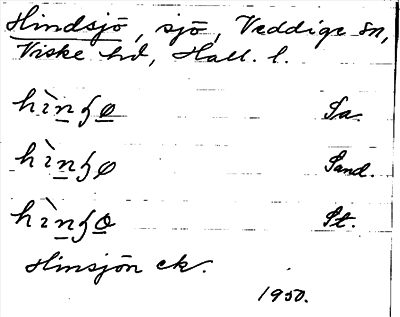 Hindsjö, sjö, Veddige sn,
Viske hd, Hall. l.
hìnɧø Sa.
hìnɧø Sand.
hìnɧø St.
Hinsjön ek.
1950.